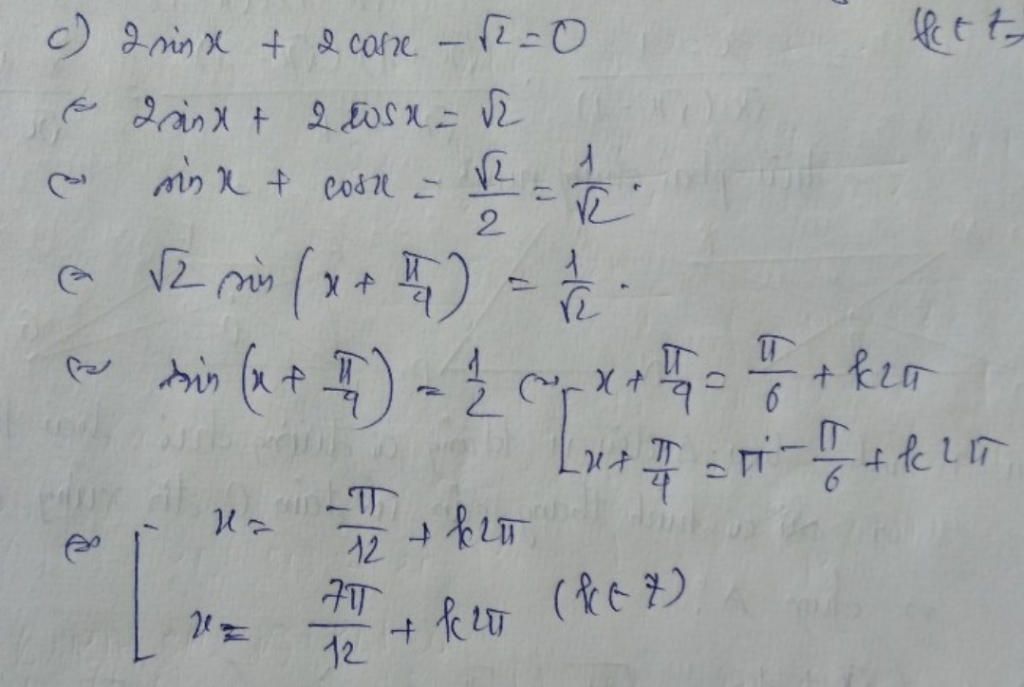 k ∈ Z
c) 2 sin x + 2 cos x - √2 = 0
⇔ 2 sin x + 2 cos x = √2
⇔ sin x + cos x = √2/2 = 1/√2 .
⇔ √2 sin (x + π/4) = 1/√2 .
⇔ sin (x + π/4) = 1/2 ⇔ [ x + π/4 = π/6 + k2π
x + π/4 = π - π/6 + k2π
⇔ [ x = -π/12 + k2π
x = 7π/12 + k2π (k ∈ Z)